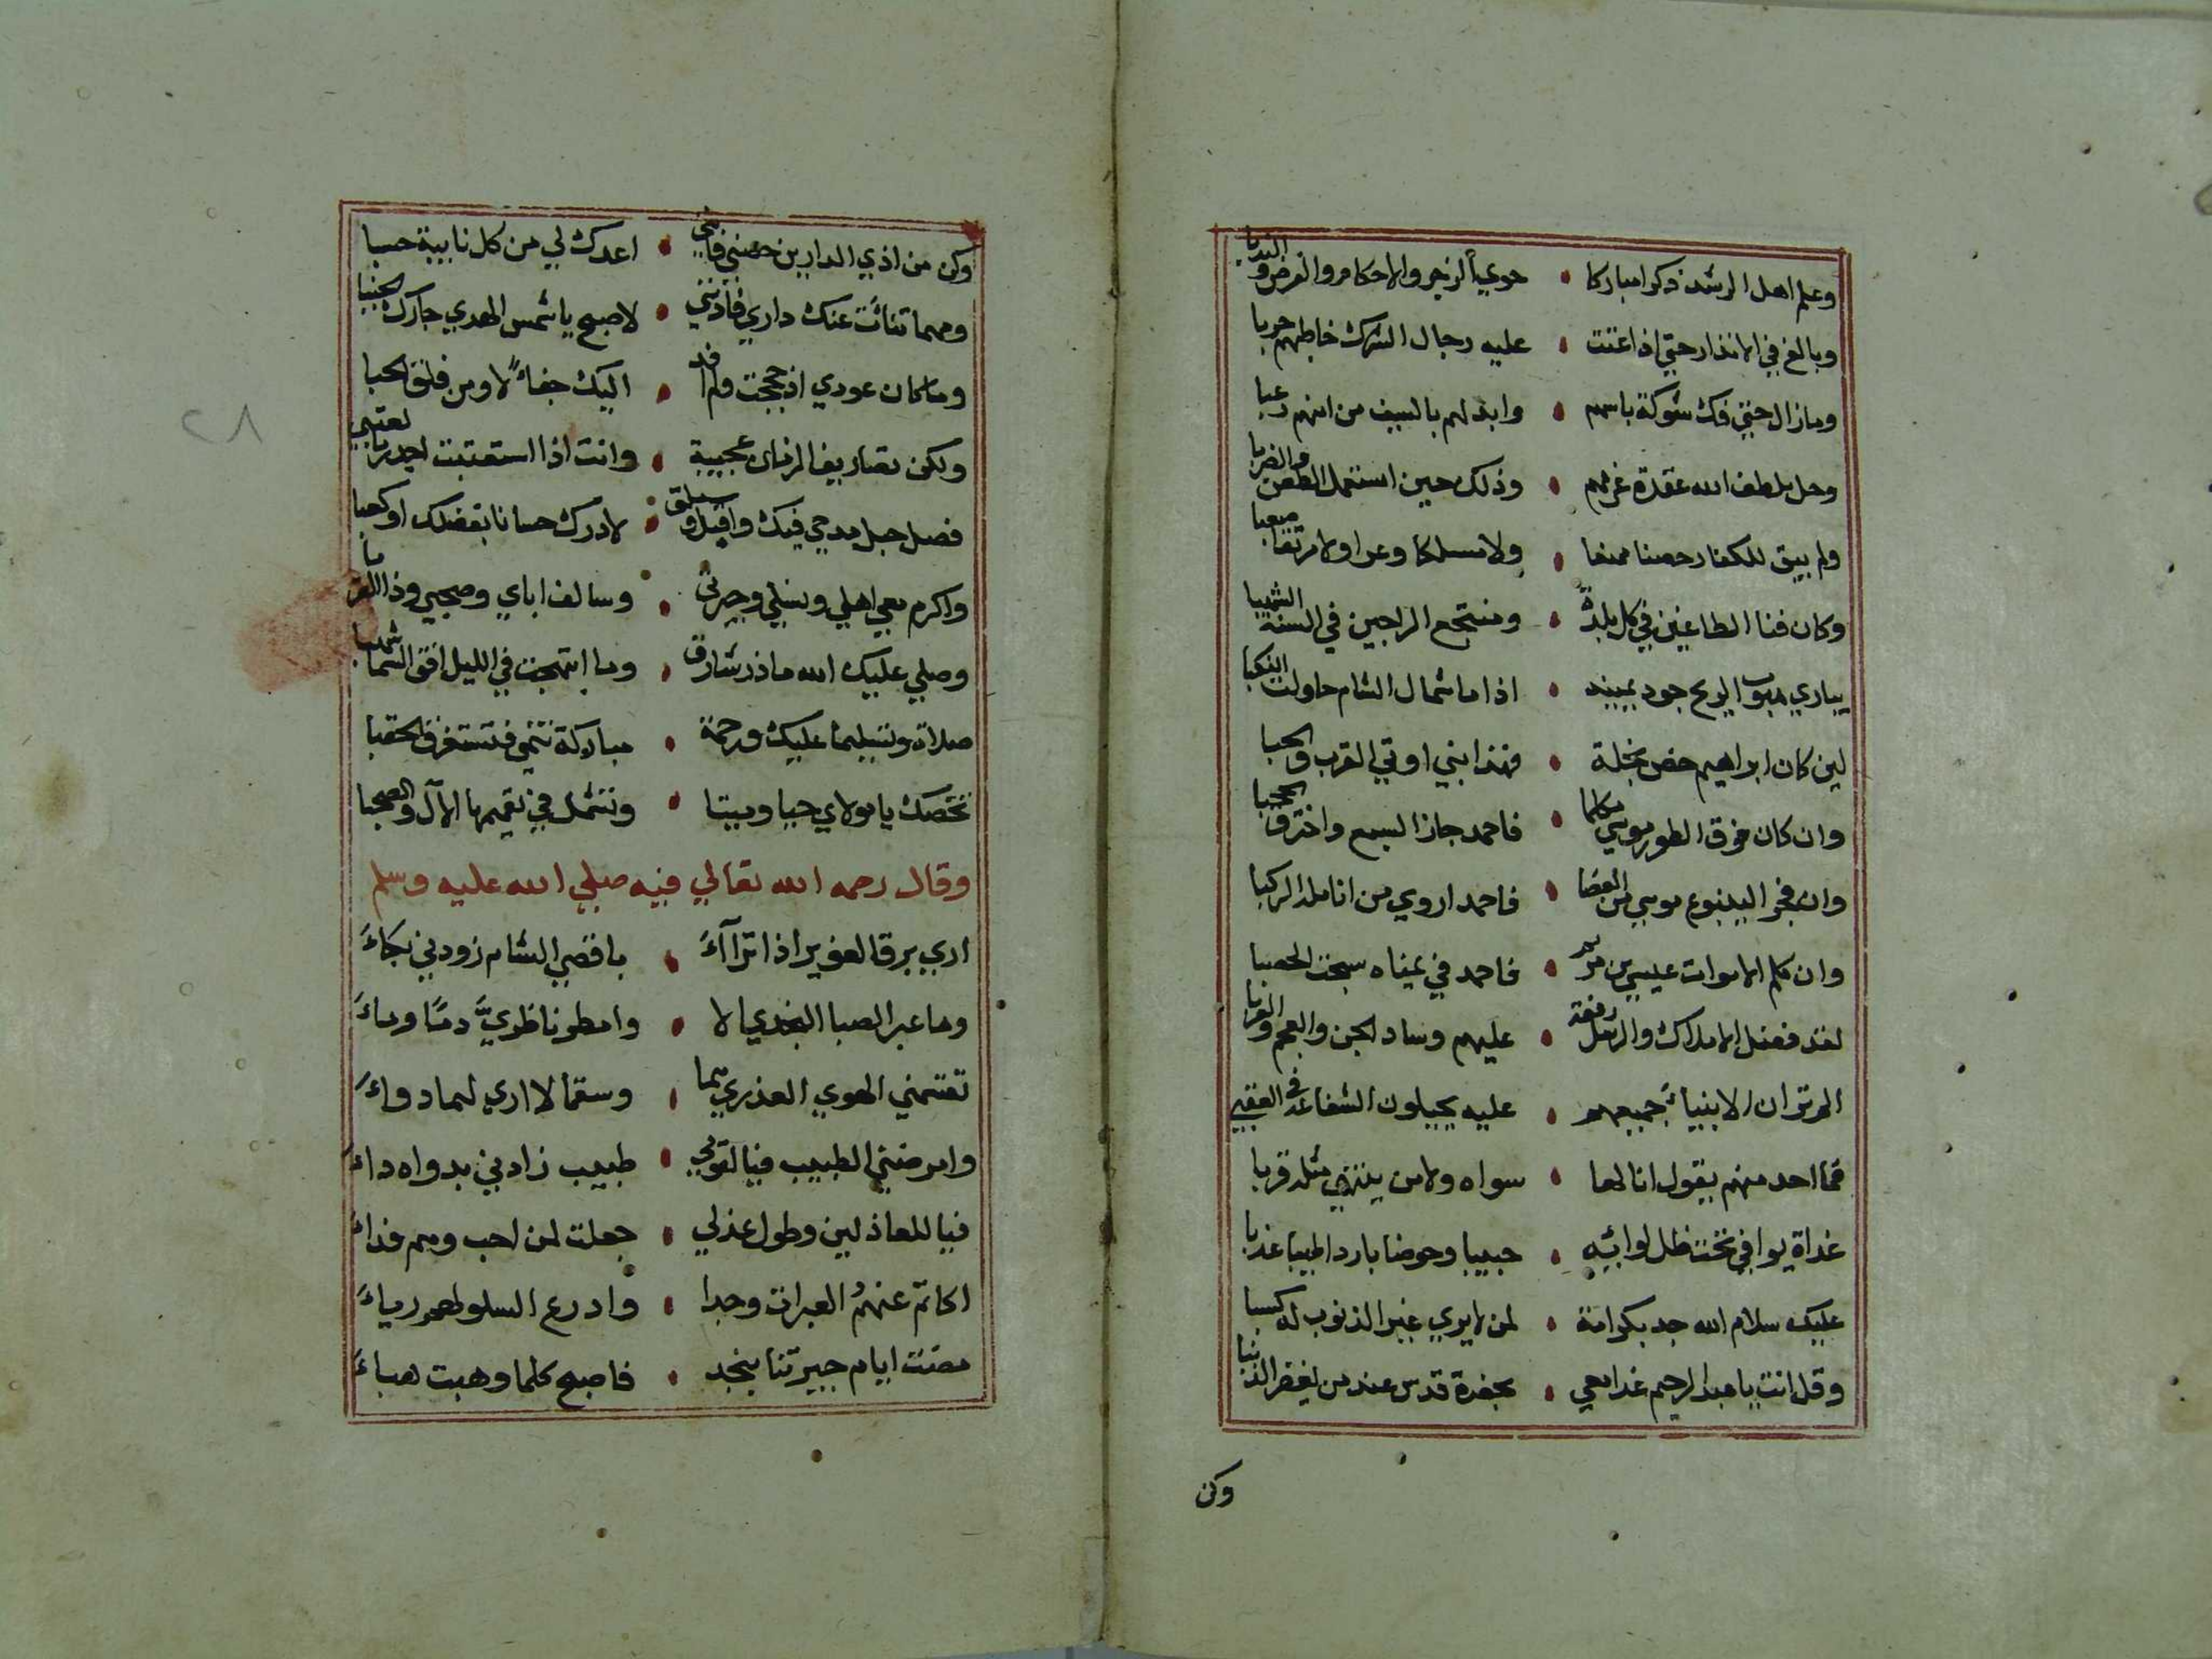 وعلم اهل الرشد ذكرا مباركا • حوي الزجر والاحكام والفرض والندبا
وبالغ في الانذار حتي اذا اعتنت • عليه رجال الشرك خاطبهم حربا
ومازال حتي فك شوكة باسهم • وابدلهم بالسيف من امنهم رعبا
وحل بلطف الله عقدة غرهم • وذلك حين استعمل الطعن والضربا
ولم يبق للكفار حصنا ممنعا • ولا مسلكا وعرا ولا مرتقا صعبا
وكان فنا الطاغين في كل بلدة • ومنتجع الراجين في السنة الشهبا
يباري هبوب الريح جود يمينه • اذا ما شمال الشام حاولت النكبا
لين كان ابراهيم خص بخلة • فهذا نبي اوتي القرب والحبا
وان كان فوق الطور موسي مكلما • فاحمد جاز السبع واخترق الحجبا
وان فجر الينبوع موسي من العصا • فاحمد اروي من انامله الركبا
وان كلم الاموات عيسي بن مريم • فاحمد في يمناه سبحت الحصبا
لقد فضل الاملاك والرسل رفعة • عليهم وساد الجن والعجم والعربا
الم تر ان الانبياء جميعهم • عليه يحيلون الشفاعة في العقبي
فما احد منهم يقول انا لها • سواه ولا من ينتهي مثله قربا
غداة يوافي تحت ظل لوائه • حبيبا وحوضا باردا طيبا عذبا
عليك سلام الله جد بكرامة • لمن لا يري غير الذنوب له كسبا
وقل انت يا عبد الرحيم غدا معي • بحضرة قدس عند من يغفر الذنبا
وكن
٢٨
وكن من اذي الدارين حصني فانني • اعدك لي من كل نايبة حسبا
ومهما تنائت عنك داري فاذنني • لاصبح يا شمس الهدي جارك الجنبا
وما كان عودي اذ حججت ولم افد • اليك جفاء لا ومن فلق الحبا
ولكن تصاريف الزمان عجيبة • وانت اذا استعتبت اجدر بالعتبي
فصل حبل مدحي فيك واقبله • لادرك حسانا بفضلك او كعبا
واكرم معي اهلي ونسلي وجيرتي • وسالف اباي وصحبي وذا القربا
وصلي عليك الله ما ذر شارق • وما ابتهجت في الليل افق السما شهبا
صلاة وتسليما عليك ورحمة • مباركة تنمي فتستغرق الحقبا
تخصك يا مولاي حيا وميتا • وتشمل في تعميمها الآل والصحبا
وقال رحمه الله تعالي فيه صلي الله عليه وسلم
اري برق الغوير اذا تراآء • باقصي الشام زودني بكاء
وما عبر الصبا النجدي الا • وامطر ناظريّ دمًا وماء
تقتمني الهوي العذري هما • وسقما لا اري لهما دواء
وامرضني الطبيب فيا لقومي • طبيب زادني بدواه داء
فيا للعاذلين وطول عذلي • جعلت لمن احب وهم فداء
اكاتم عنهمُ العبرات وجدا • وادرع السلو لهم رياء
مضت ايام جيرتنا بنجد • فاصبح كلما وهبت هباء